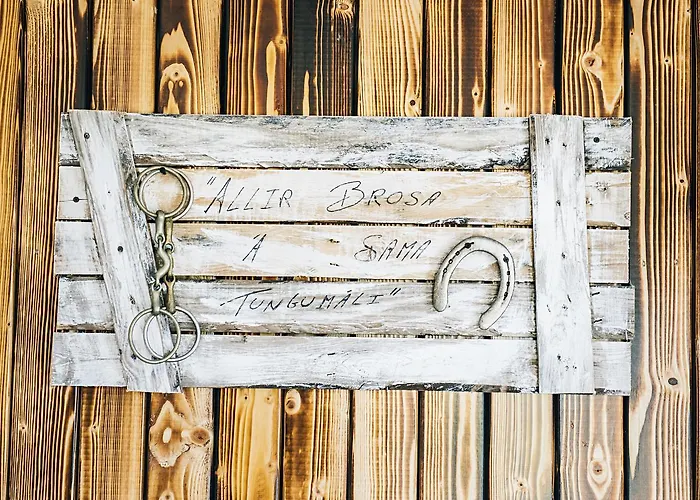 "ALLIR BROSA
Á SAMA
TUNGUMÁLI"